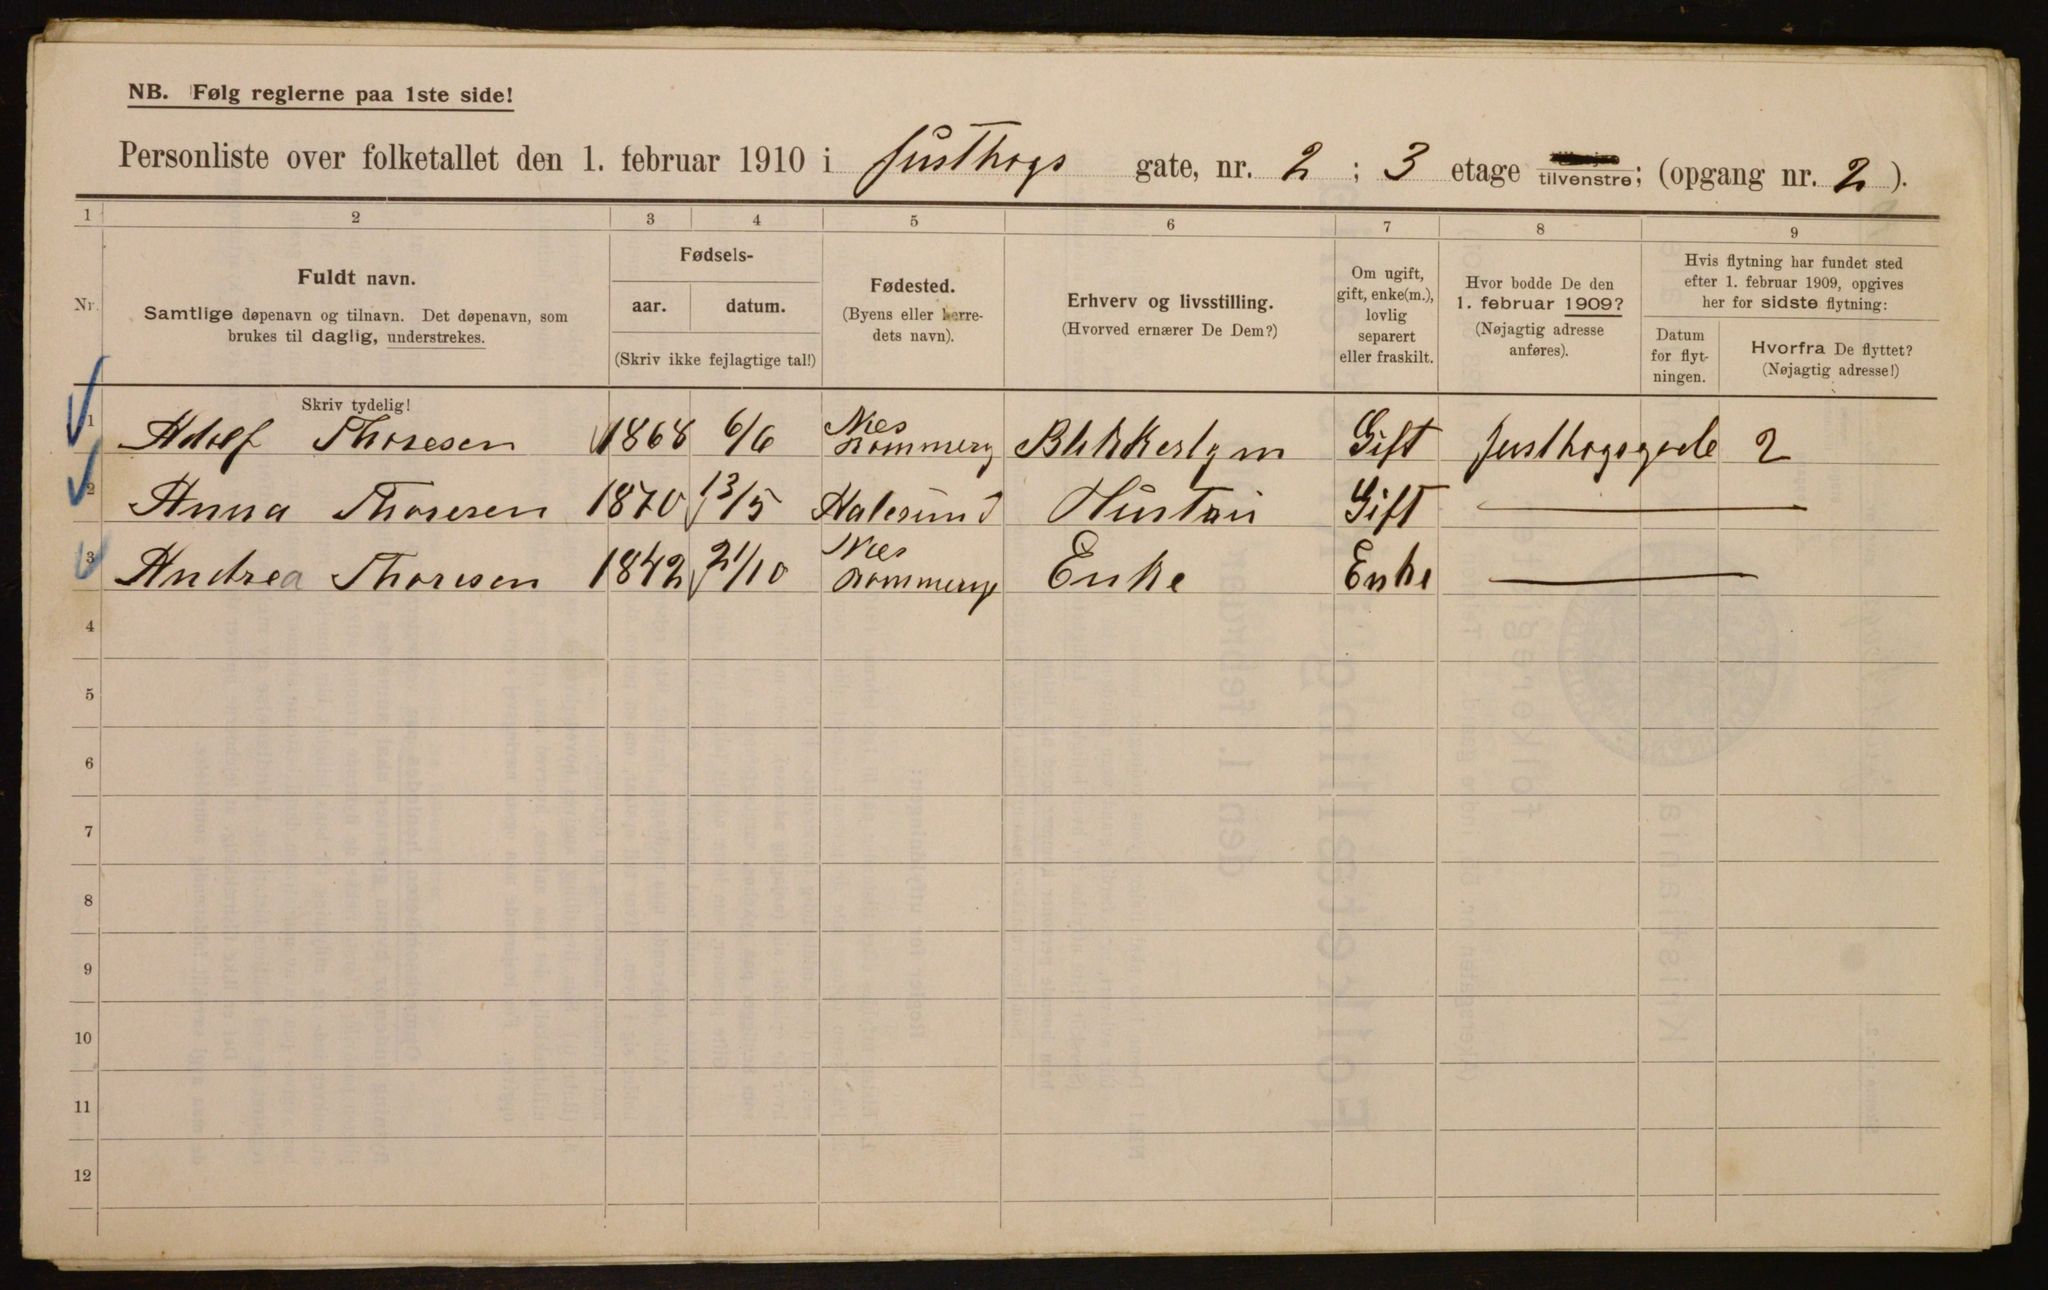 NB. Følg reglerne paa 1ste side!
Personliste over folketallet den 1. februar 1910 i Justhogs gate, nr. 2 ; 3 etage tilvenstre; (opgang nr. 2).
1 2 3 4 5 6 7 8 9
Nr.
Fuldt navn.
Samtlige døpenavn og tilnavn. Det døpenavn, som
brukes til daglig, understrekes.
Fødsels-
aar. datum.
(Skriv ikke fejlagtige tal!)
Fødested.
(Byens eller herre-
dets navn).
Erhverv og livsstilling.
(Hvorved ernærer De Dem?)
Om ugift,
gift, enke(m.),
lovlig
separert
eller fraskilt.
Hvor bodde De den
1. februar 1909?
(Nøjagtig adresse
anføres).
Hvis flytning har fundet sted
efter 1. februar 1909, opgives
her for sidste flytning:
Datum
for flyt-
ningen.
Hvorfra De flyttet?
(Nøjagtig adresse!)
Skriv tydelig!
1 Adolf Thoresen 1868 6/6 Nes Rommerg Gift Justhogsgade 2
2 Anna Thoresen 1870 13/5 Aalesund Hustru Gift
3 Andrea Thoresen 1842 21/10 Nes Rommerge Enke Enke
4
5
6
7
8
9
10
11
12